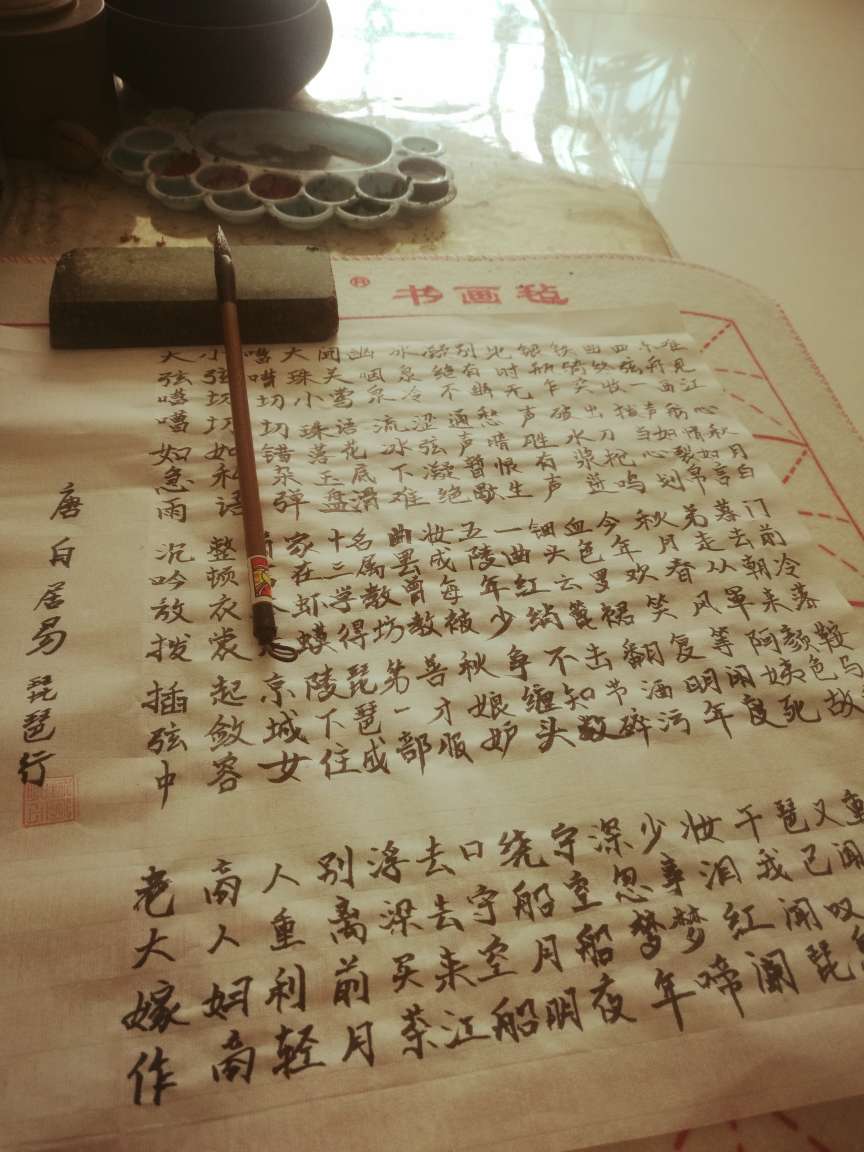 大弦嘈嘈如急雨
小弦切切如私语
切切错杂弹
大珠小珠落玉盘
间关莺语花底滑
幽咽泉流冰下难
冰泉冷涩弦凝绝
凝绝不通声暂歇
别有幽愁暗恨生
此时无声胜有声
银瓶乍破水浆迸
铁骑突出刀枪鸣
曲终收拨当心划
四弦一声如裂帛
唯见江心秋月白
沉吟放拨插弦中
整顿衣裳起敛容
京城女
家在虾蟆陵下住
十三学得琵琶成
名属教坊第一部
曲罢曾教善才服
妆成每被秋娘妒
五陵年少争缠头
一曲红绡不知数
钿头云篦节碎
血色罗裙翻酒污
今年欢笑复明年
秋月春风等闲度
弟走从军阿姨死
暮去朝来颜色故
门前冷落鞍马
老大嫁作
商人妇商
人重利轻
别离前月
浮梁买茶
去去来江
口守空船
绕船月明
深忽梦年
少事梦啼
妆泪红阑
干我闻琵
琶已叹
又闻
重
唐白居易琵琶行
书画毡
®